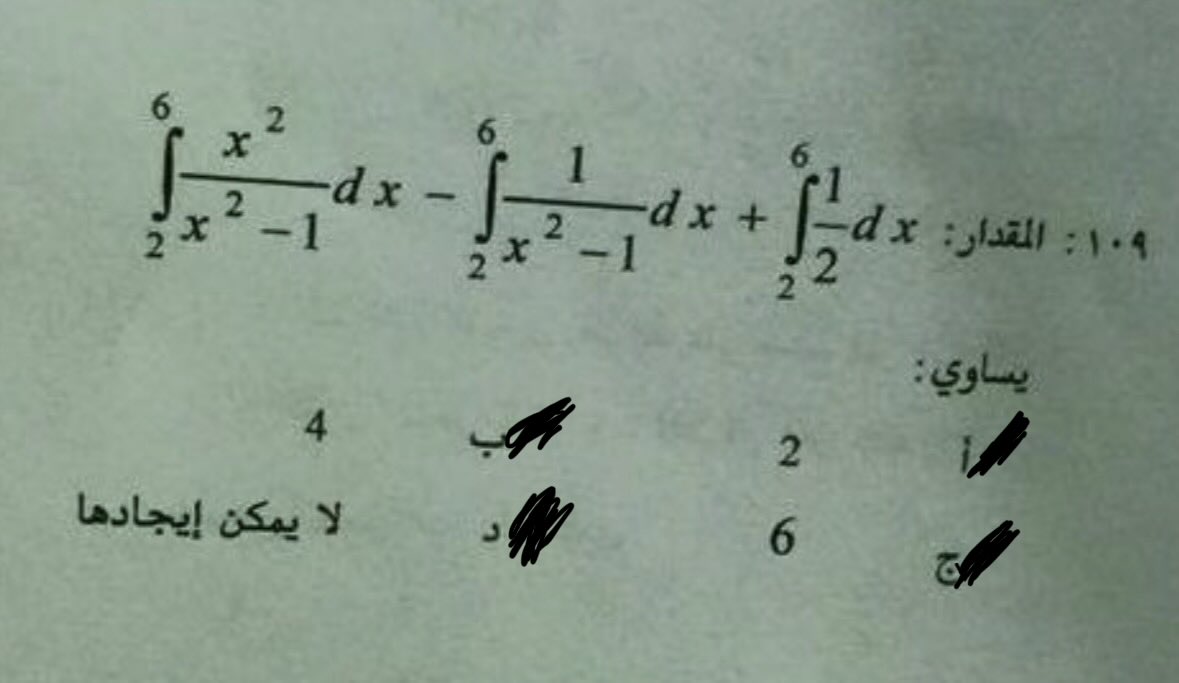 ١٠٩ : المقدار: $\int_{2}^{6} \frac{x^2}{x^2-1} dx - \int_{2}^{6} \frac{1}{x^2-1} dx + \int_{2}^{6} \frac{1}{2} dx$
يساوي:
أ 2 ب 4
ج 6 د لا يمكن إيجادها